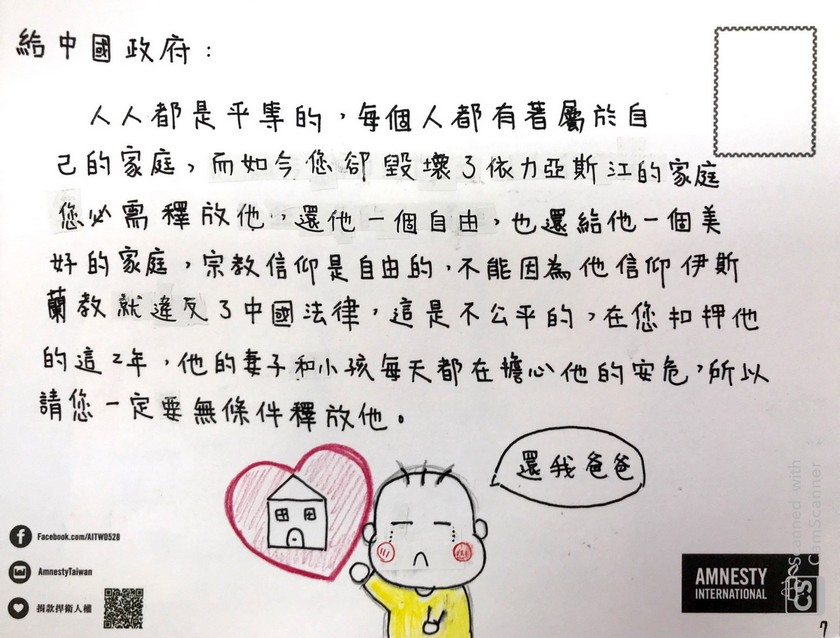 給中國政府:
人人都是平等的,每個人都有著屬於自
己的家庭,而如今您卻毀壞了依力亞斯江的家庭
您必需釋放他,還他一個自由,也還給他一個美
好的家庭,宗教信仰是自由的,不能因為他信仰伊斯
蘭教就違反了中國法律,這是不公平的,在您扣押他
的這2年,他的妻子和小孩每天都在擔心他的安危,所以
請您一定要無條件釋放他。
還我爸爸
Facebook.com/AITW0528
AmnestyTaiwan
捐款捍衛人權
AMNESTY
INTERNATIONAL
CS
Scanned with
CamScanner
7